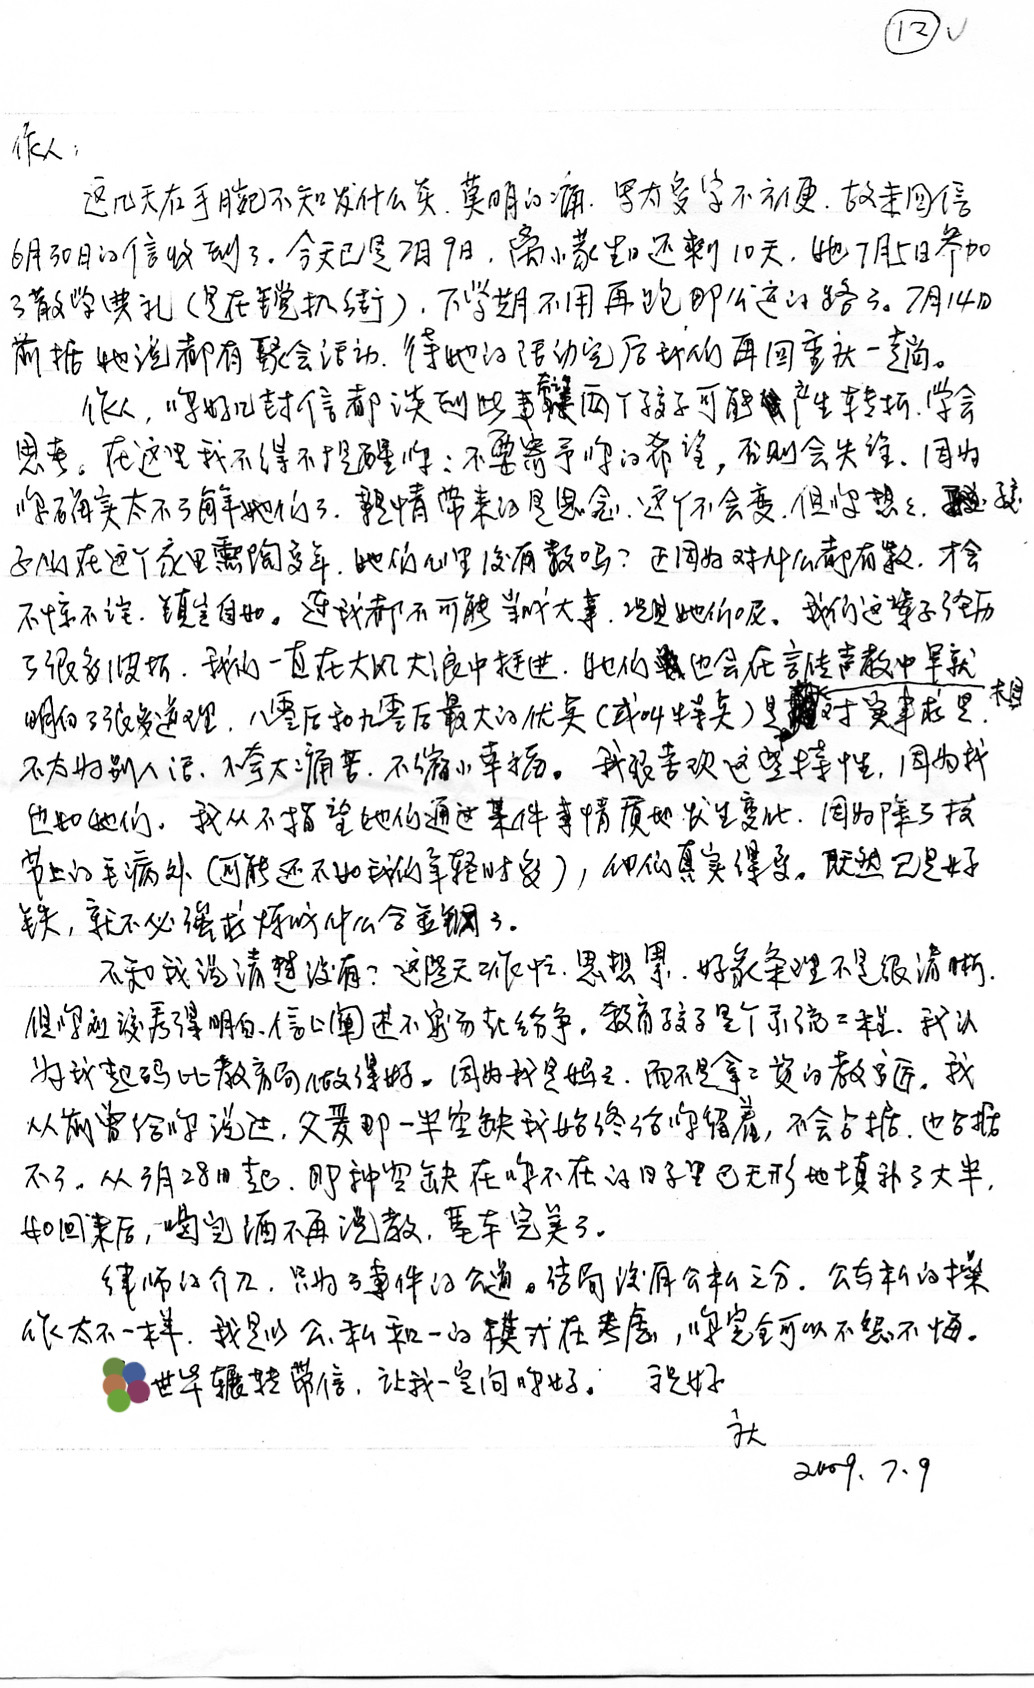 ⑫ √
作人：
这几天右手腕不知发什么炎，莫明的痛，写太多字不方便，故未回信
6月30日的信收到了。今天已是7月9日，离小蒙生日还剩10天，她7月5日参加
了散学典礼（是在镗扒街），下学期不用再跑那么远的路了。7月14日
前据她说都有聚会活动，待她的活动完后我们再回重庆一趟。
作人，你好几封信都谈到此事希望两个孩子可能产生转折，学会
思考。在这里我不得不提醒你：不要寄予你的希望，否则会失望，因为
你确实太不了解她们了，亲情带来的是思念，这个不会变，但你想想，孩
子们在这个家里熏陶多年，她们心里没有数吗？正因为对什么都有数，才会
不惊不诧，镇定自如。连我都不可能当成大事，况且她们呢。我们这辈子经历
了很多波折，我们一直在大风大浪中挺进，她们也会在言传声教中早就
明白了很多道理，八零后和九零后最大的优点（或叫特点）是对实事求是，相
不为别人活，不夸大痛苦，不缩小幸福。我很喜欢这些特性，因为我
也如她们。我从不指望她们通过某件事情质地发生变化，因为除了枝
节上的毛病外（可能还不如我们年轻时多），他们真实得多。既然已是好
铁，就不必强求炼成什么合金钢了。
不知我说清楚没有？这些天工作忙，思想累，好象条理不是很清晰，
但你应该看得明白，信上阐述不容易起纷争。教育孩子是个系统工程，我认
为我起码比教育局做得好。因为我是妈妈，而不是拿工资的教书匠。我
从前曾给你说过，父爱那一半空缺我始终给你留着，不会占据，也占据
不了。从3月28日起，那种空缺在你不在的日子里已无形地填补了大半，
如回来后，喝完酒不再说教，基本完美了。
律师的介入，只为了事件的公道。结局没有公私之分，公与私的操
作太不一样，我是以公私和一的模式在考虑，你完全可以不怨不悔。
世华辗转带信，让我一定向你问好。 祝好
秋
2009.7.9